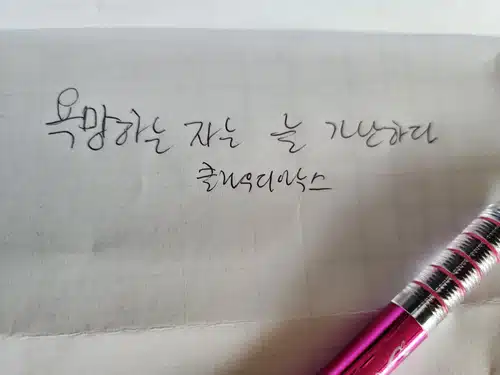 욕망하는 자는 늘 가난하다
클라우디아눅스